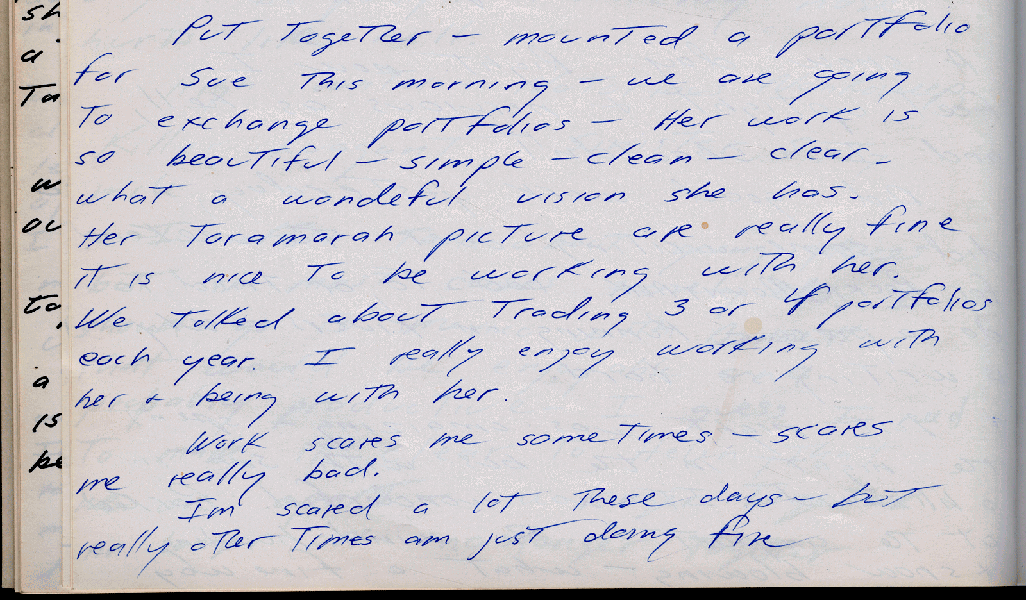 Put Together – mounted a portfolio
for Sue This morning – we are going
To exchange portfolios – Her work is
so beautiful – simple – clean – clear.
what a wondeful vision she has.
Her Taramarah picture are really fine
it is nice To be working with her.
We Talked about Trading 3 or 4 portfolios
each year. I really enjoy working with
her + being with her.
Work scares me someTimes – scares
me really bad.
Im scared a lot These days – but
really oTher Times am just doing fine
sh
a
Ta
w
ou
to
a
is
be